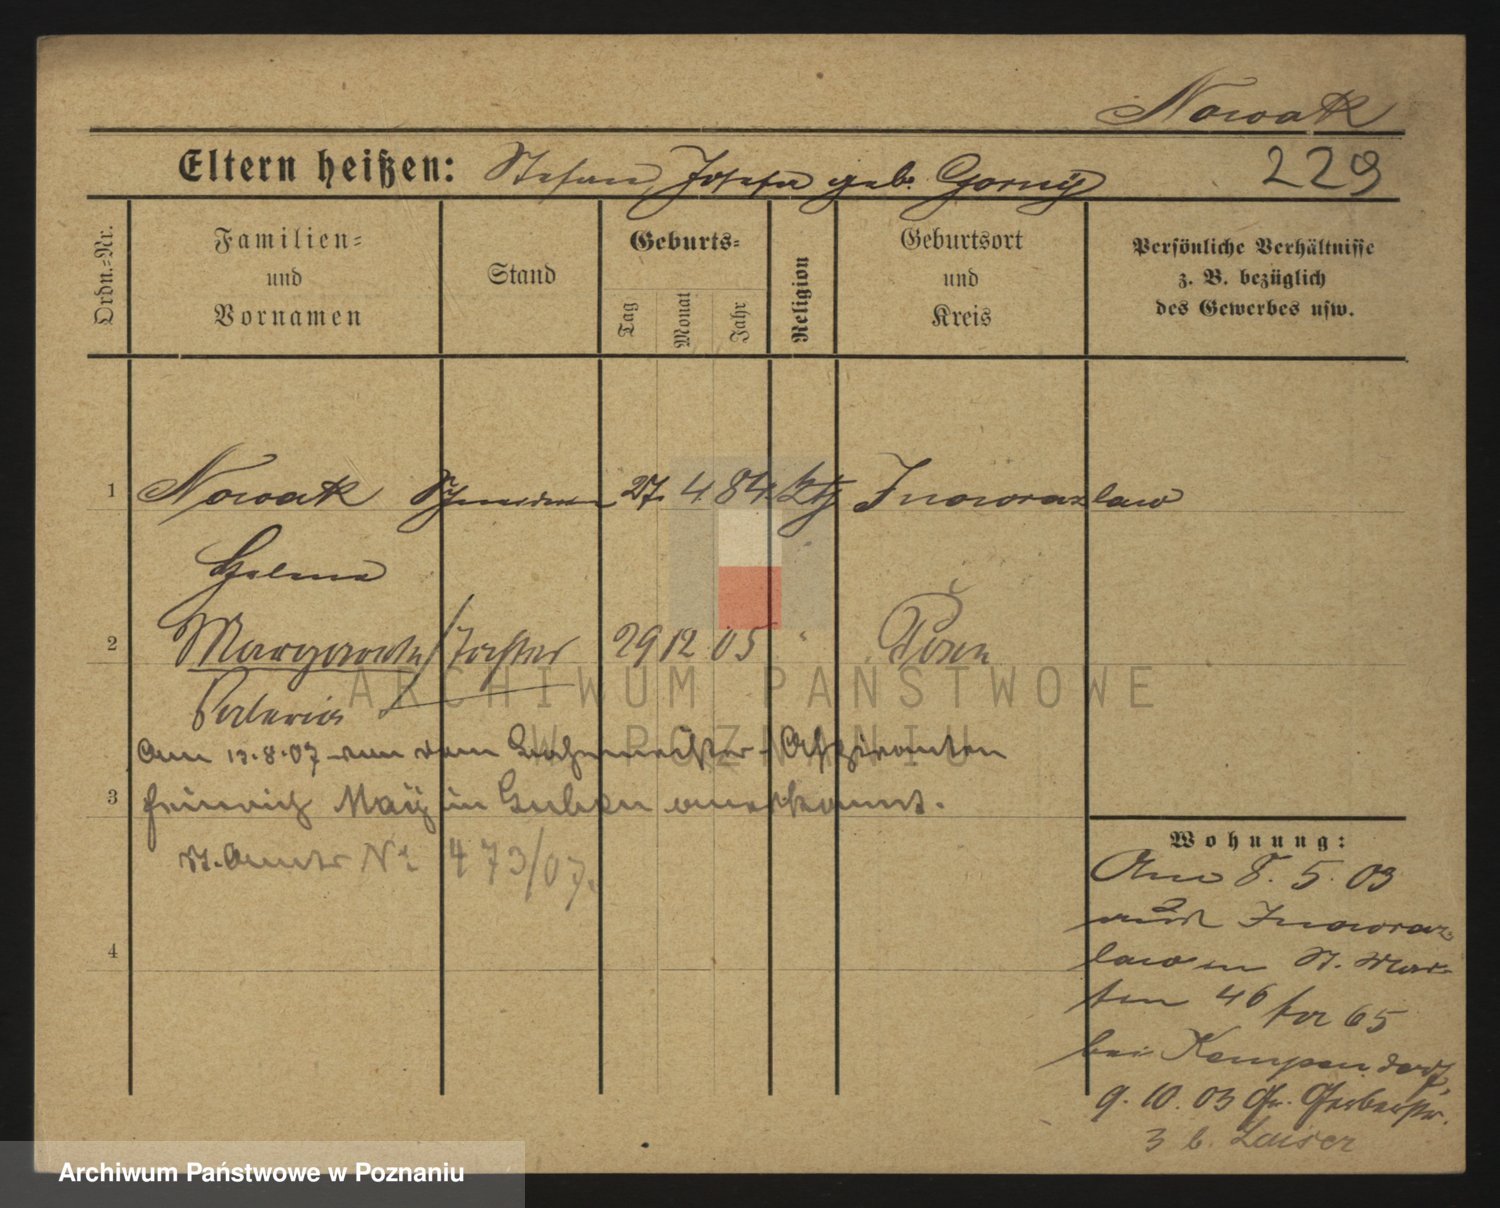 Nowak
Eltern heißen: Stefan, Josefa geb. Gorny 229
Ordn.=Nr.
Familien=
und
Vornamen
Stand
Geburts=
Tag
Monat
Jahr
Religion
Geburtsort
und
Kreis
Persönliche Verhältnisse
z. B. bezüglich
des Gewerbes usw.
1 Nowak 27. 4. 84. kth Inowrazlaw
Helene
2 Margarete Tochter 29 12 05 " Posen
Valeria
Am 13.8.07 von dem
3 Heinrich May in Guben anerkannt.
St. Amts No 473/07.
4
Wohnung:
Am 8. 5. 03
aus Inowraz
law in St. Mar-
tin 46 65
bei
9. 10. 03 Gr. Gerberstr.
3 b.
ARCHIWUM PAŃSTWOWE
W POZNANIU
Archiwum Państwowe w Poznaniu